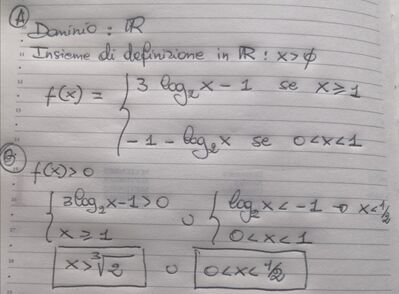 A
Dominio : ℝ
Insieme di definizione in ℝ : x>0
f(x) = { 3 log₂x - 1 se x ≥ 1
- 1 - log₂x se 0<x<1
B
f(x)>0
{ 3log₂x-1>0 ∪ { log₂x < -1 → x<1/2
x ≥ 1 0<x<1
x>∛2 ∪ 0<x<1/2